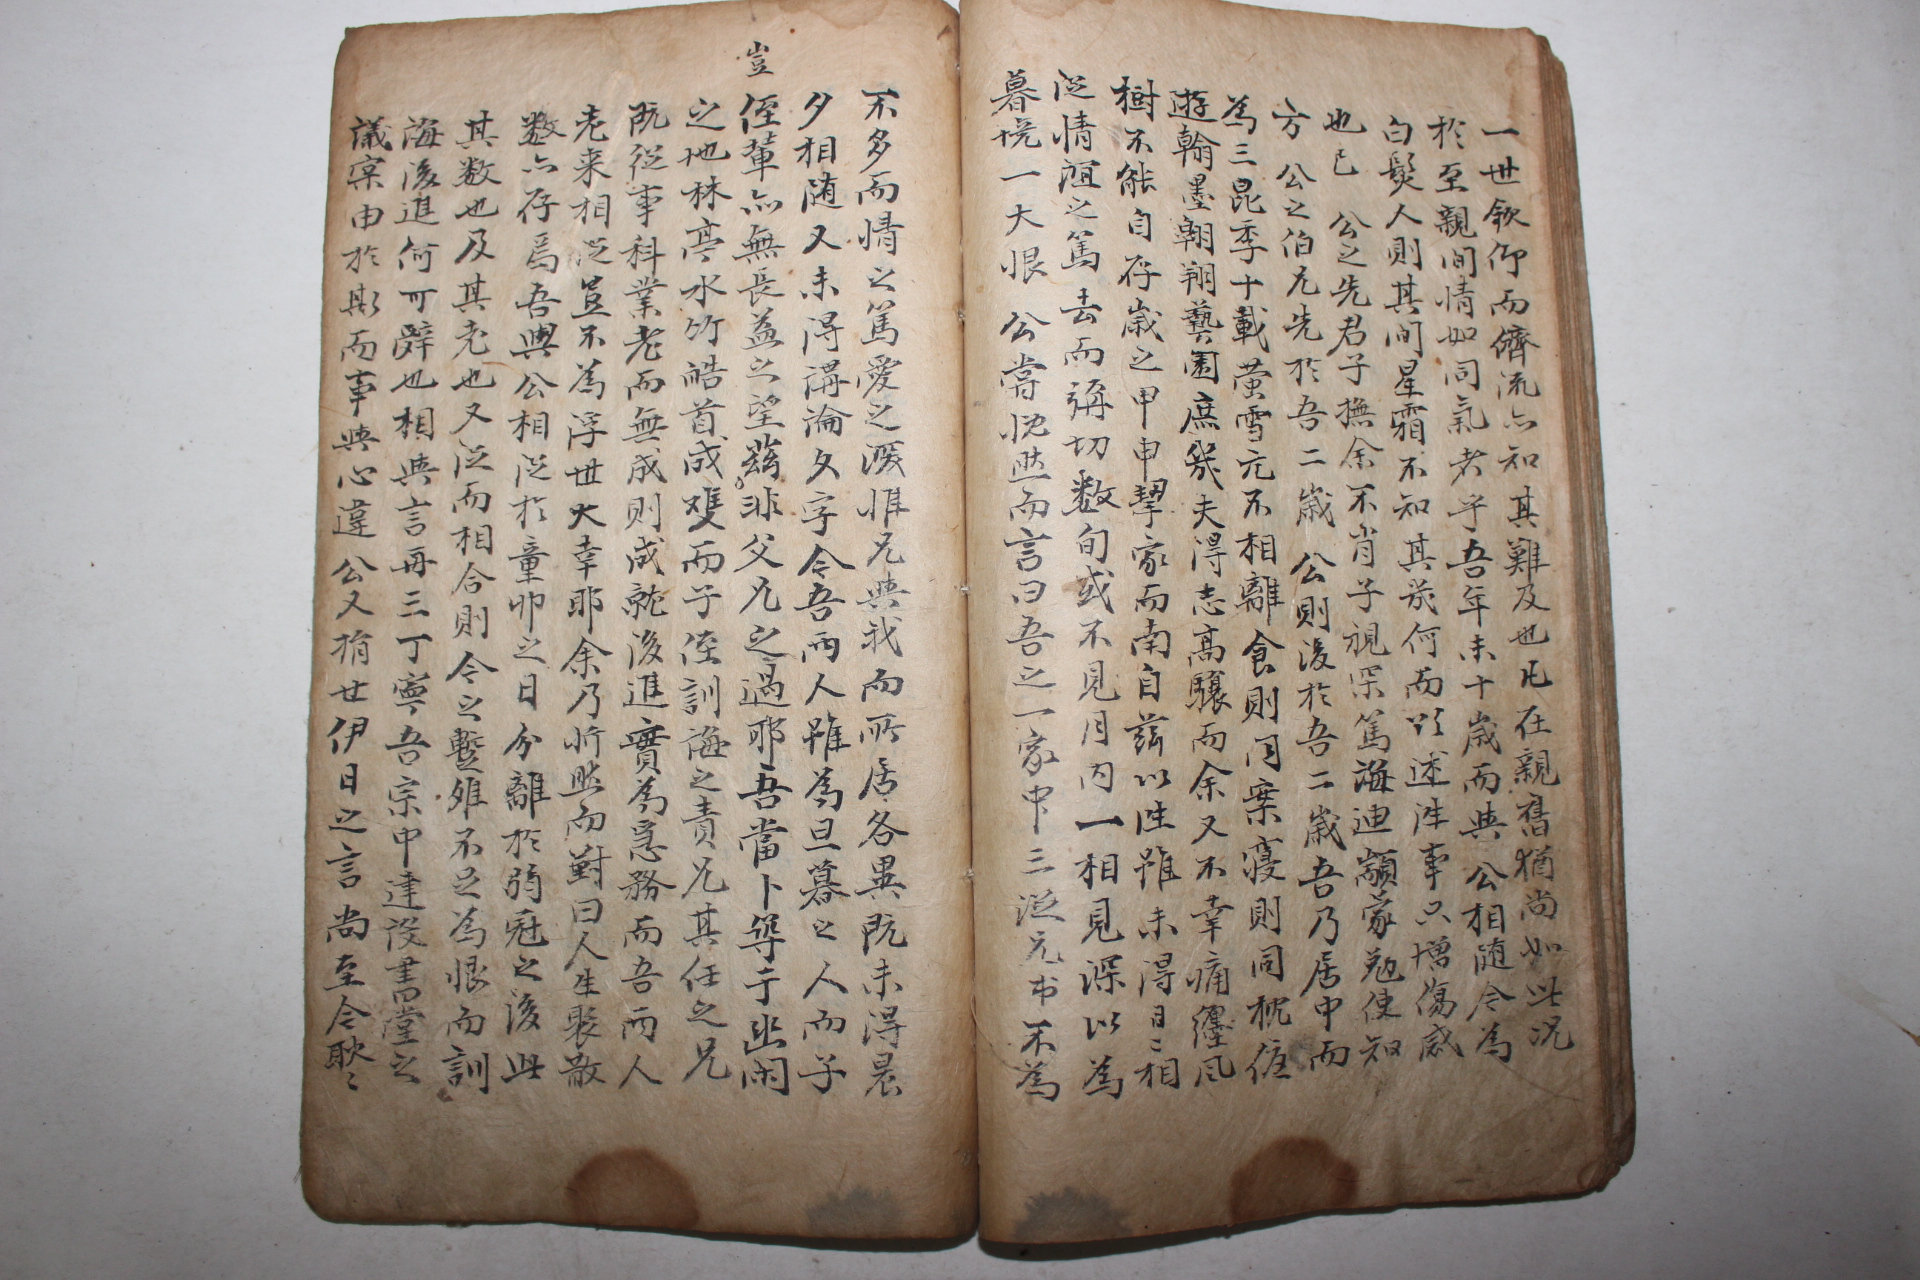 一世欽仰而儕流亦知其難及也凡在親舊猶尙如此況
於至親間情如同氣者乎吾年未十歲而與 公相隨今爲
白髮人則其間星霜不知其幾何而歷述往事只增傷感
也已 公之先君子撫余不肖子視深篤誨迪顓蒙勉使知
方 公之伯兄先於吾二歲 公則後於吾二歲吾乃居中而
爲三昆季十載螢雪元不相離食則同案寢則同枕
遊翰墨翺翔藝圃庶幾夫得志高驤而余又不幸痛纏風
樹不能自存歲之甲申挈家而南自玆以往雖未得日〻相
從情誼之篤去而彌切數旬或不見月內一相見深以爲
暮境一大恨 公嘗怳然而言曰吾之一家中三從兄弟不爲
不多而情之篤愛之深惟兄與我而所居各異旣未得晨
夕相随又未得講論文字今吾兩人雖爲旦暮之人而子
侄輩亦無長益之望玆豈非父兄之過耶吾當卜築于幽閑
之地林亭水竹皓首成雙而子侄訓誨之責兄其任之兄
旣從事科業老而無成則成就後進實爲急務而吾兩人
老來相從豈不爲浮世大幸耶余乃怡然而對曰人生聚散
數亦存焉吾與公相從於童丱之日分離於弱冠之後此
其數也及其老也又從而相合則今之暫離不足爲恨而訓
誨後進何可辭也相與言再三丁寧吾宗中建設書堂之
議寔由於此而事與心違 公又捐世伊日之言尙至今耿〻